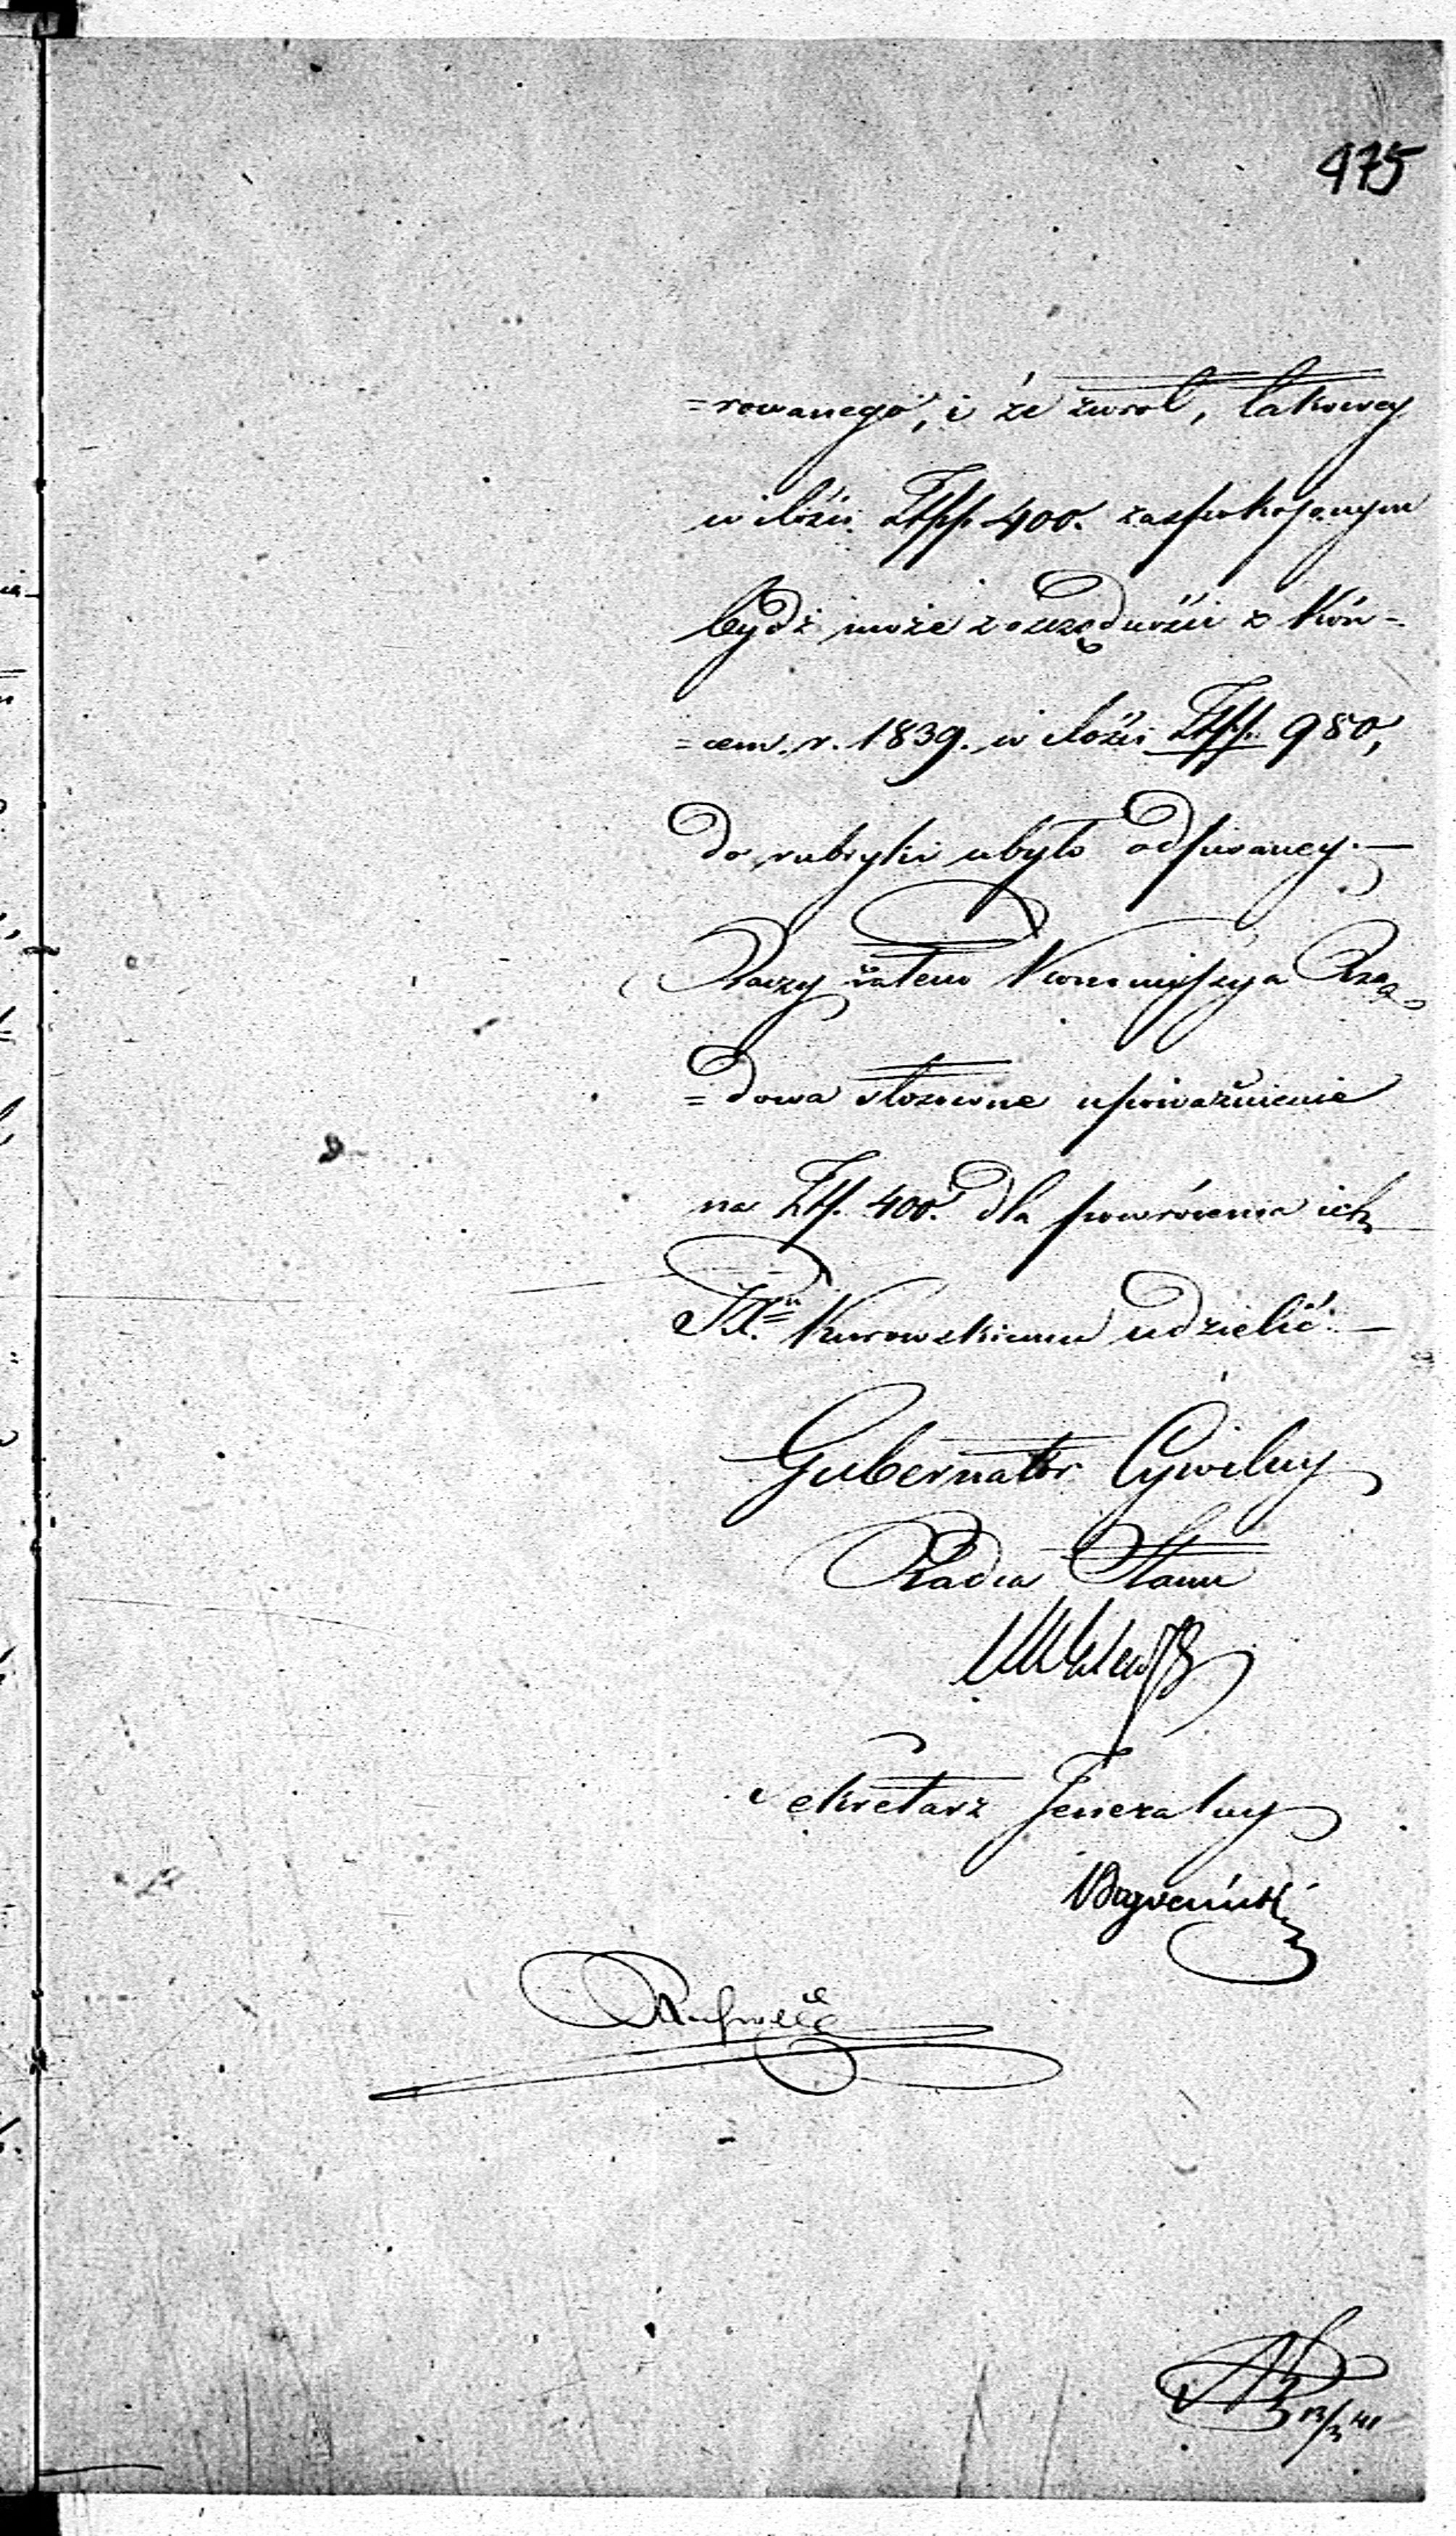 475
=rowanego, i że zwrot, takowey
w ilości Złpp. 400. zaspokojonym
bydź może z oszczędności z Koń=
=cem r. 1839. w ilości Złpp. 980,
do rubryki ubyło odpisaney. —
Raczy zatem Kommissya Rzą
=dowa stosowne upoważnienie
na Złp. 400. dla powrócenia ich
Kurowskiemu udzielić. —
Gubernator Cywilny
Radca Stanu
Sekretarz Jeneralny
13/3 41